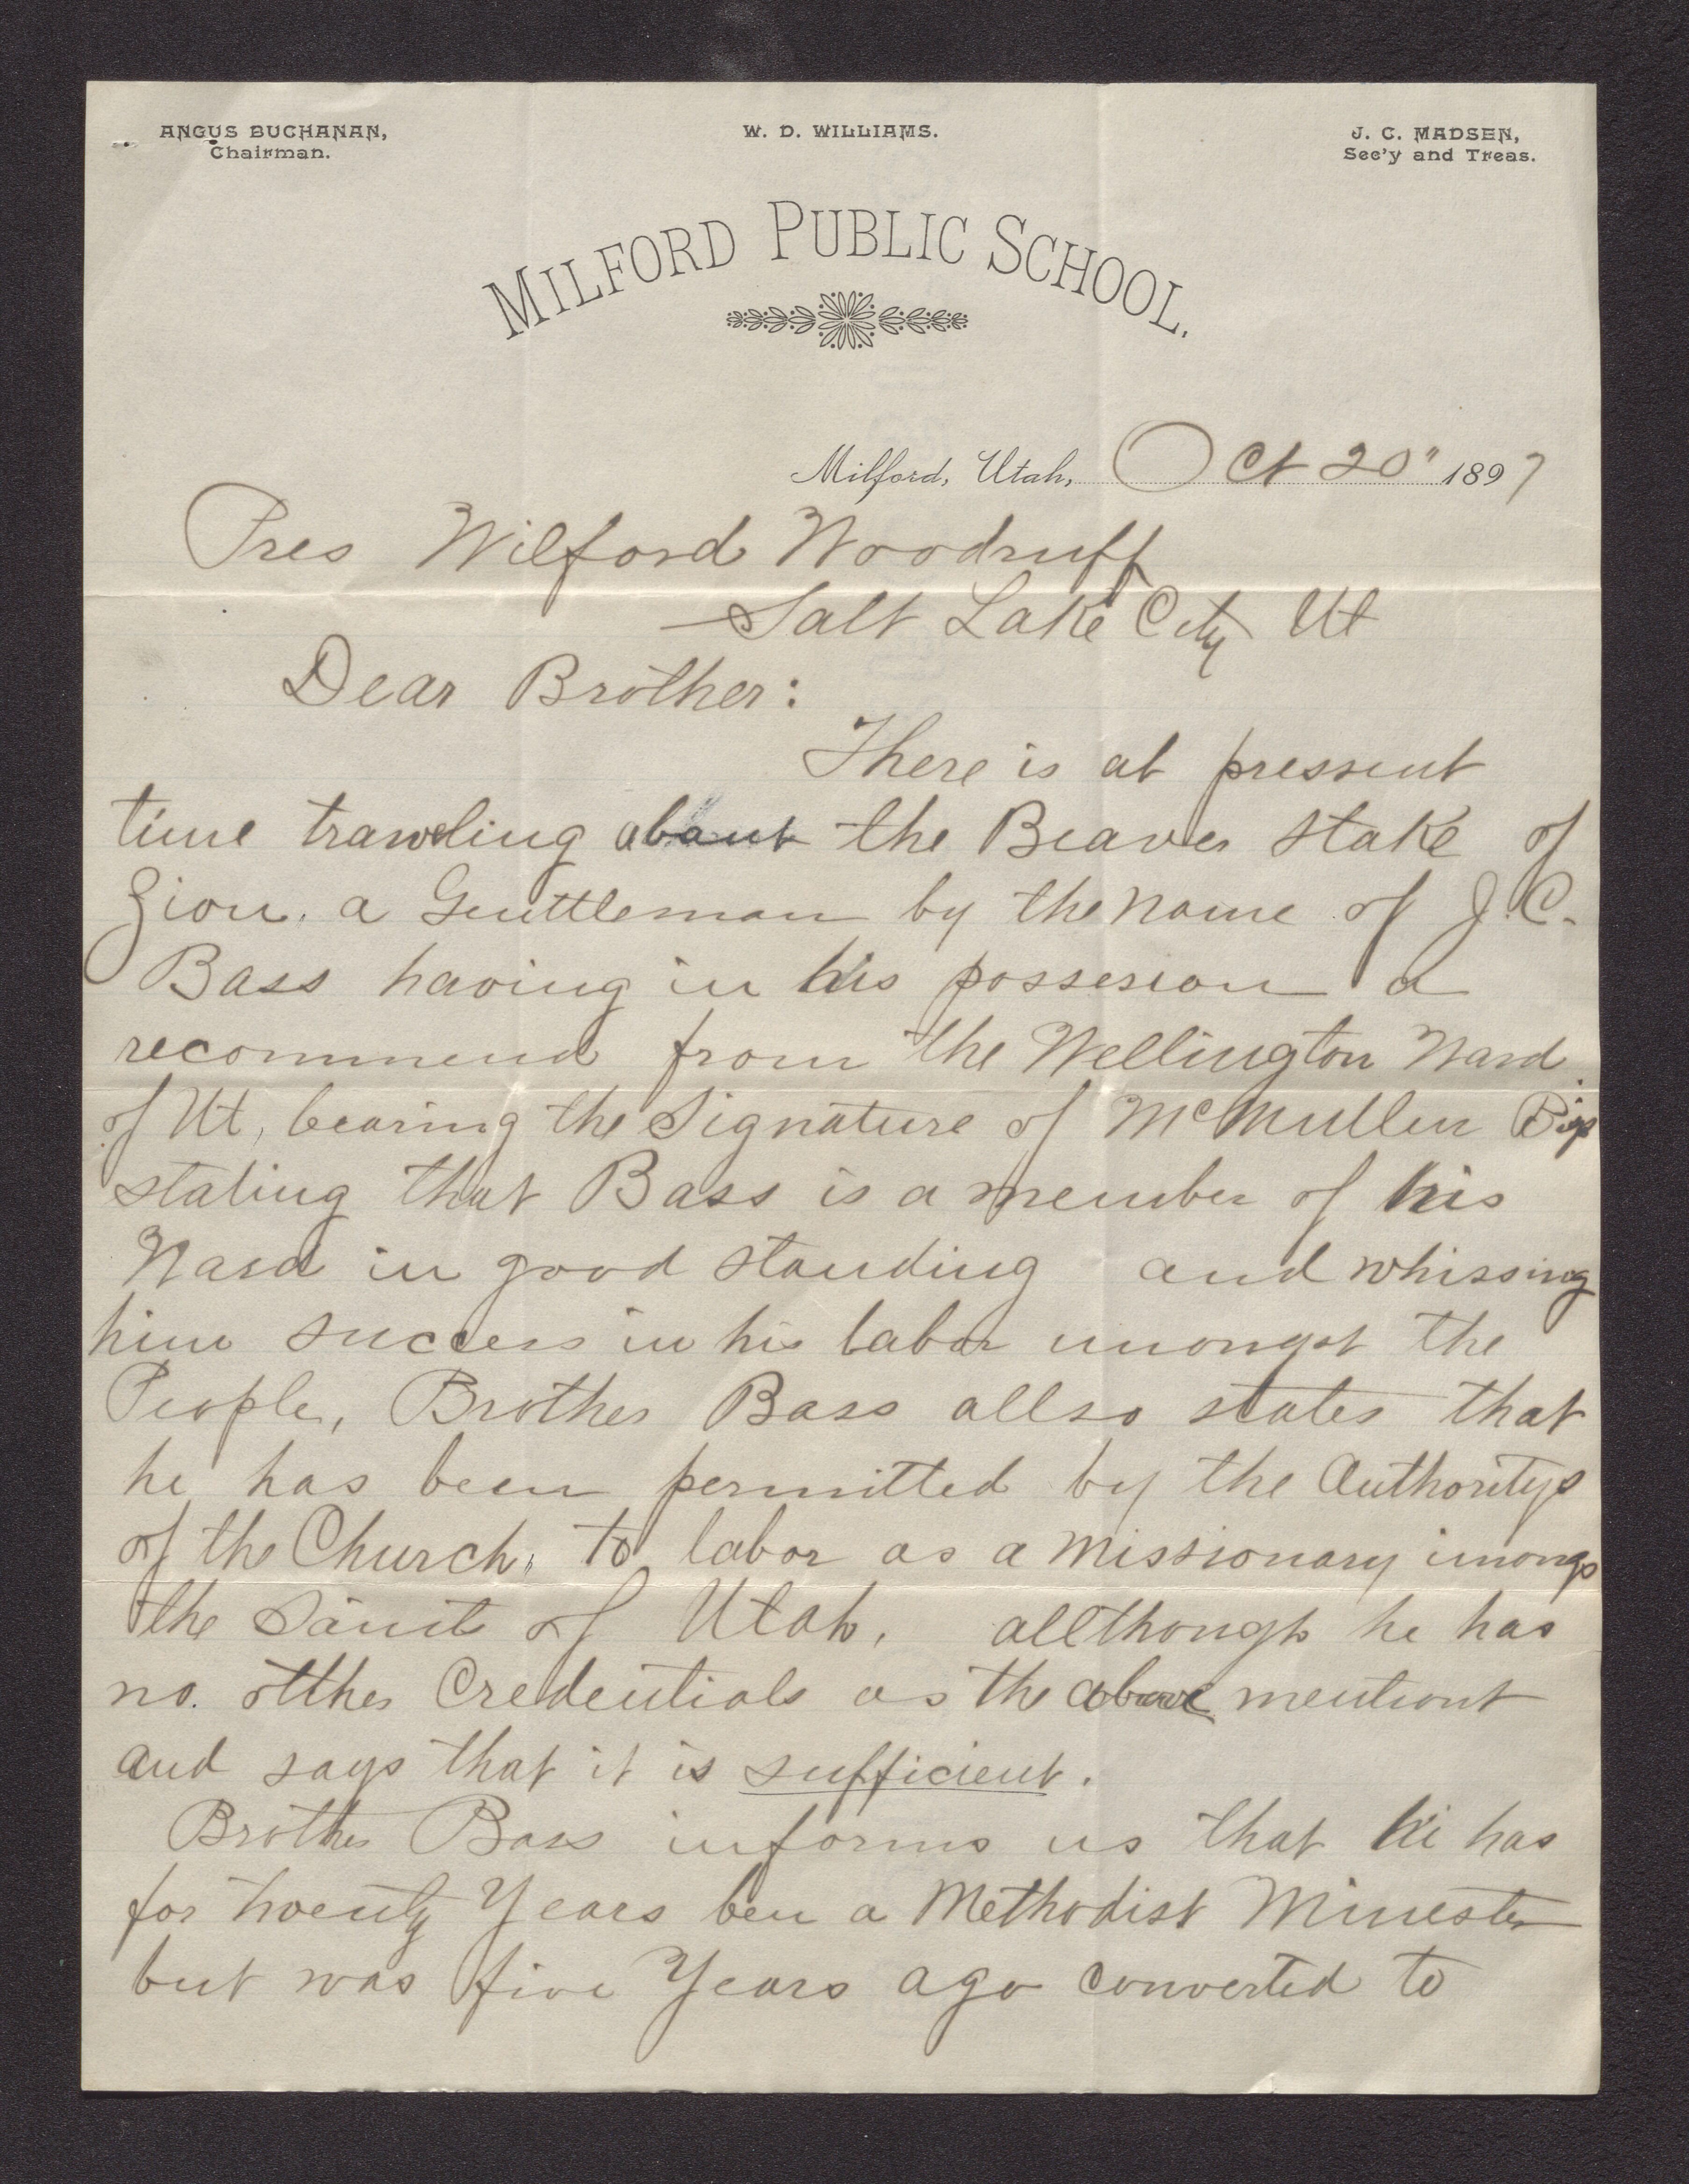 ANGUS BUCHANAN,
Chairman.
W. D. WILLIAMS.
J. C. MADSEN,
Sec'y and Treas.
MILFORD PUBLIC SCHOOL.
Milford, Utah, Oct 20" 1897
Pres Wilford Woodruff
Salt Lake City Ut
Dear Brother:
There is at pressent
time traweling about the Beaver Stake of
Zion, a Genttleman by the name of J. C.
Bass having in his possesion a
recommend from the Wellington Ward
of Ut, bearing the Signature of McMullen Bip
stating that Bass is a member of his
Ward in good standing and whissing
him success in his labor umongst the
People, Brother Bass allso states that
he has been permitted by the Authoritys
of the Church, to labor as a missionary imongs
the Saint of Utah, allthough he has
no. otther Credentials as the above mentiont
and says that it is sufficient.
Brother Bass informs us that he has
for twenty Years ben a Methodist Minester
but was five Years ago converted to